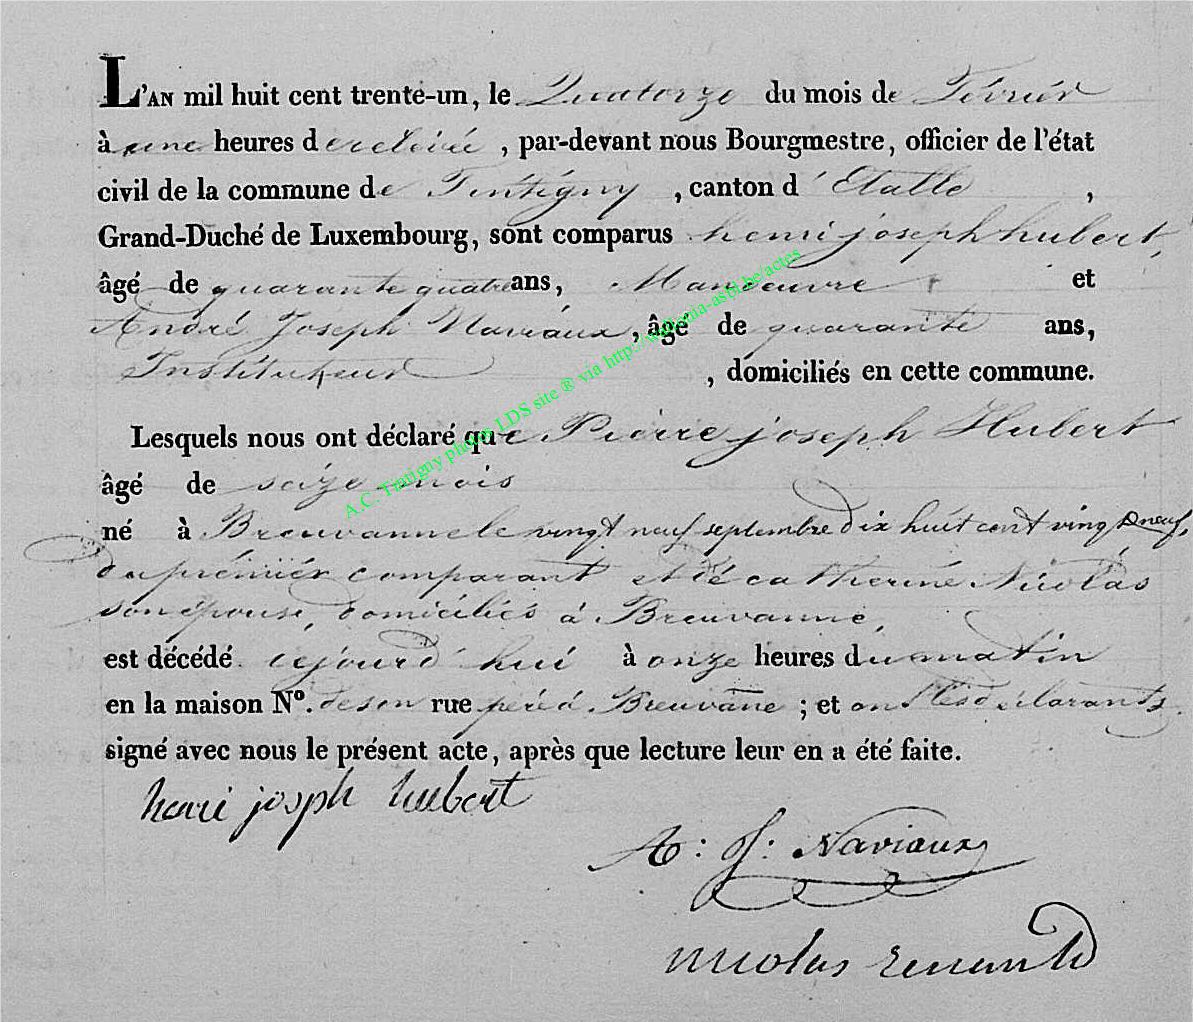 L'AN mil huit cent trente-un, le Quatorze du mois de Février
à une heures de relevée, par-devant nous Bourgmestre, officier de l'état
civil de la commune de Tintigny, canton d'Etalle,
Grand-Duché de Luxembourg, sont comparus henri joseph hubert,
âgé de quarante quatre ans, Manoeuvre et
André Joseph Naviaux, âgé de quarante ans,
Instituteur, domiciliés en cette commune.
Lesquels nous ont déclaré que Pierre joseph Hubert
âgé de seize mois
né à Breuvanne le vingt neuf septembre dix huit cent vingt neuf,
du prémiér comparant et dé catherine Nicolas
son épouse, domiciliés à Breuvanne,
est décédé cejourd'hui à onze heures du matin
en la maison No. de son rue pére à Breuvanne; et ont les déclarants
signé avec nous le présent acte, après que lecture leur en a été faite.
henri josph hubert
A: J: Naviaux
nicolas renauld
A.C. Tintigny photos LDS site ® via http://wallonia-asbl.be/actes